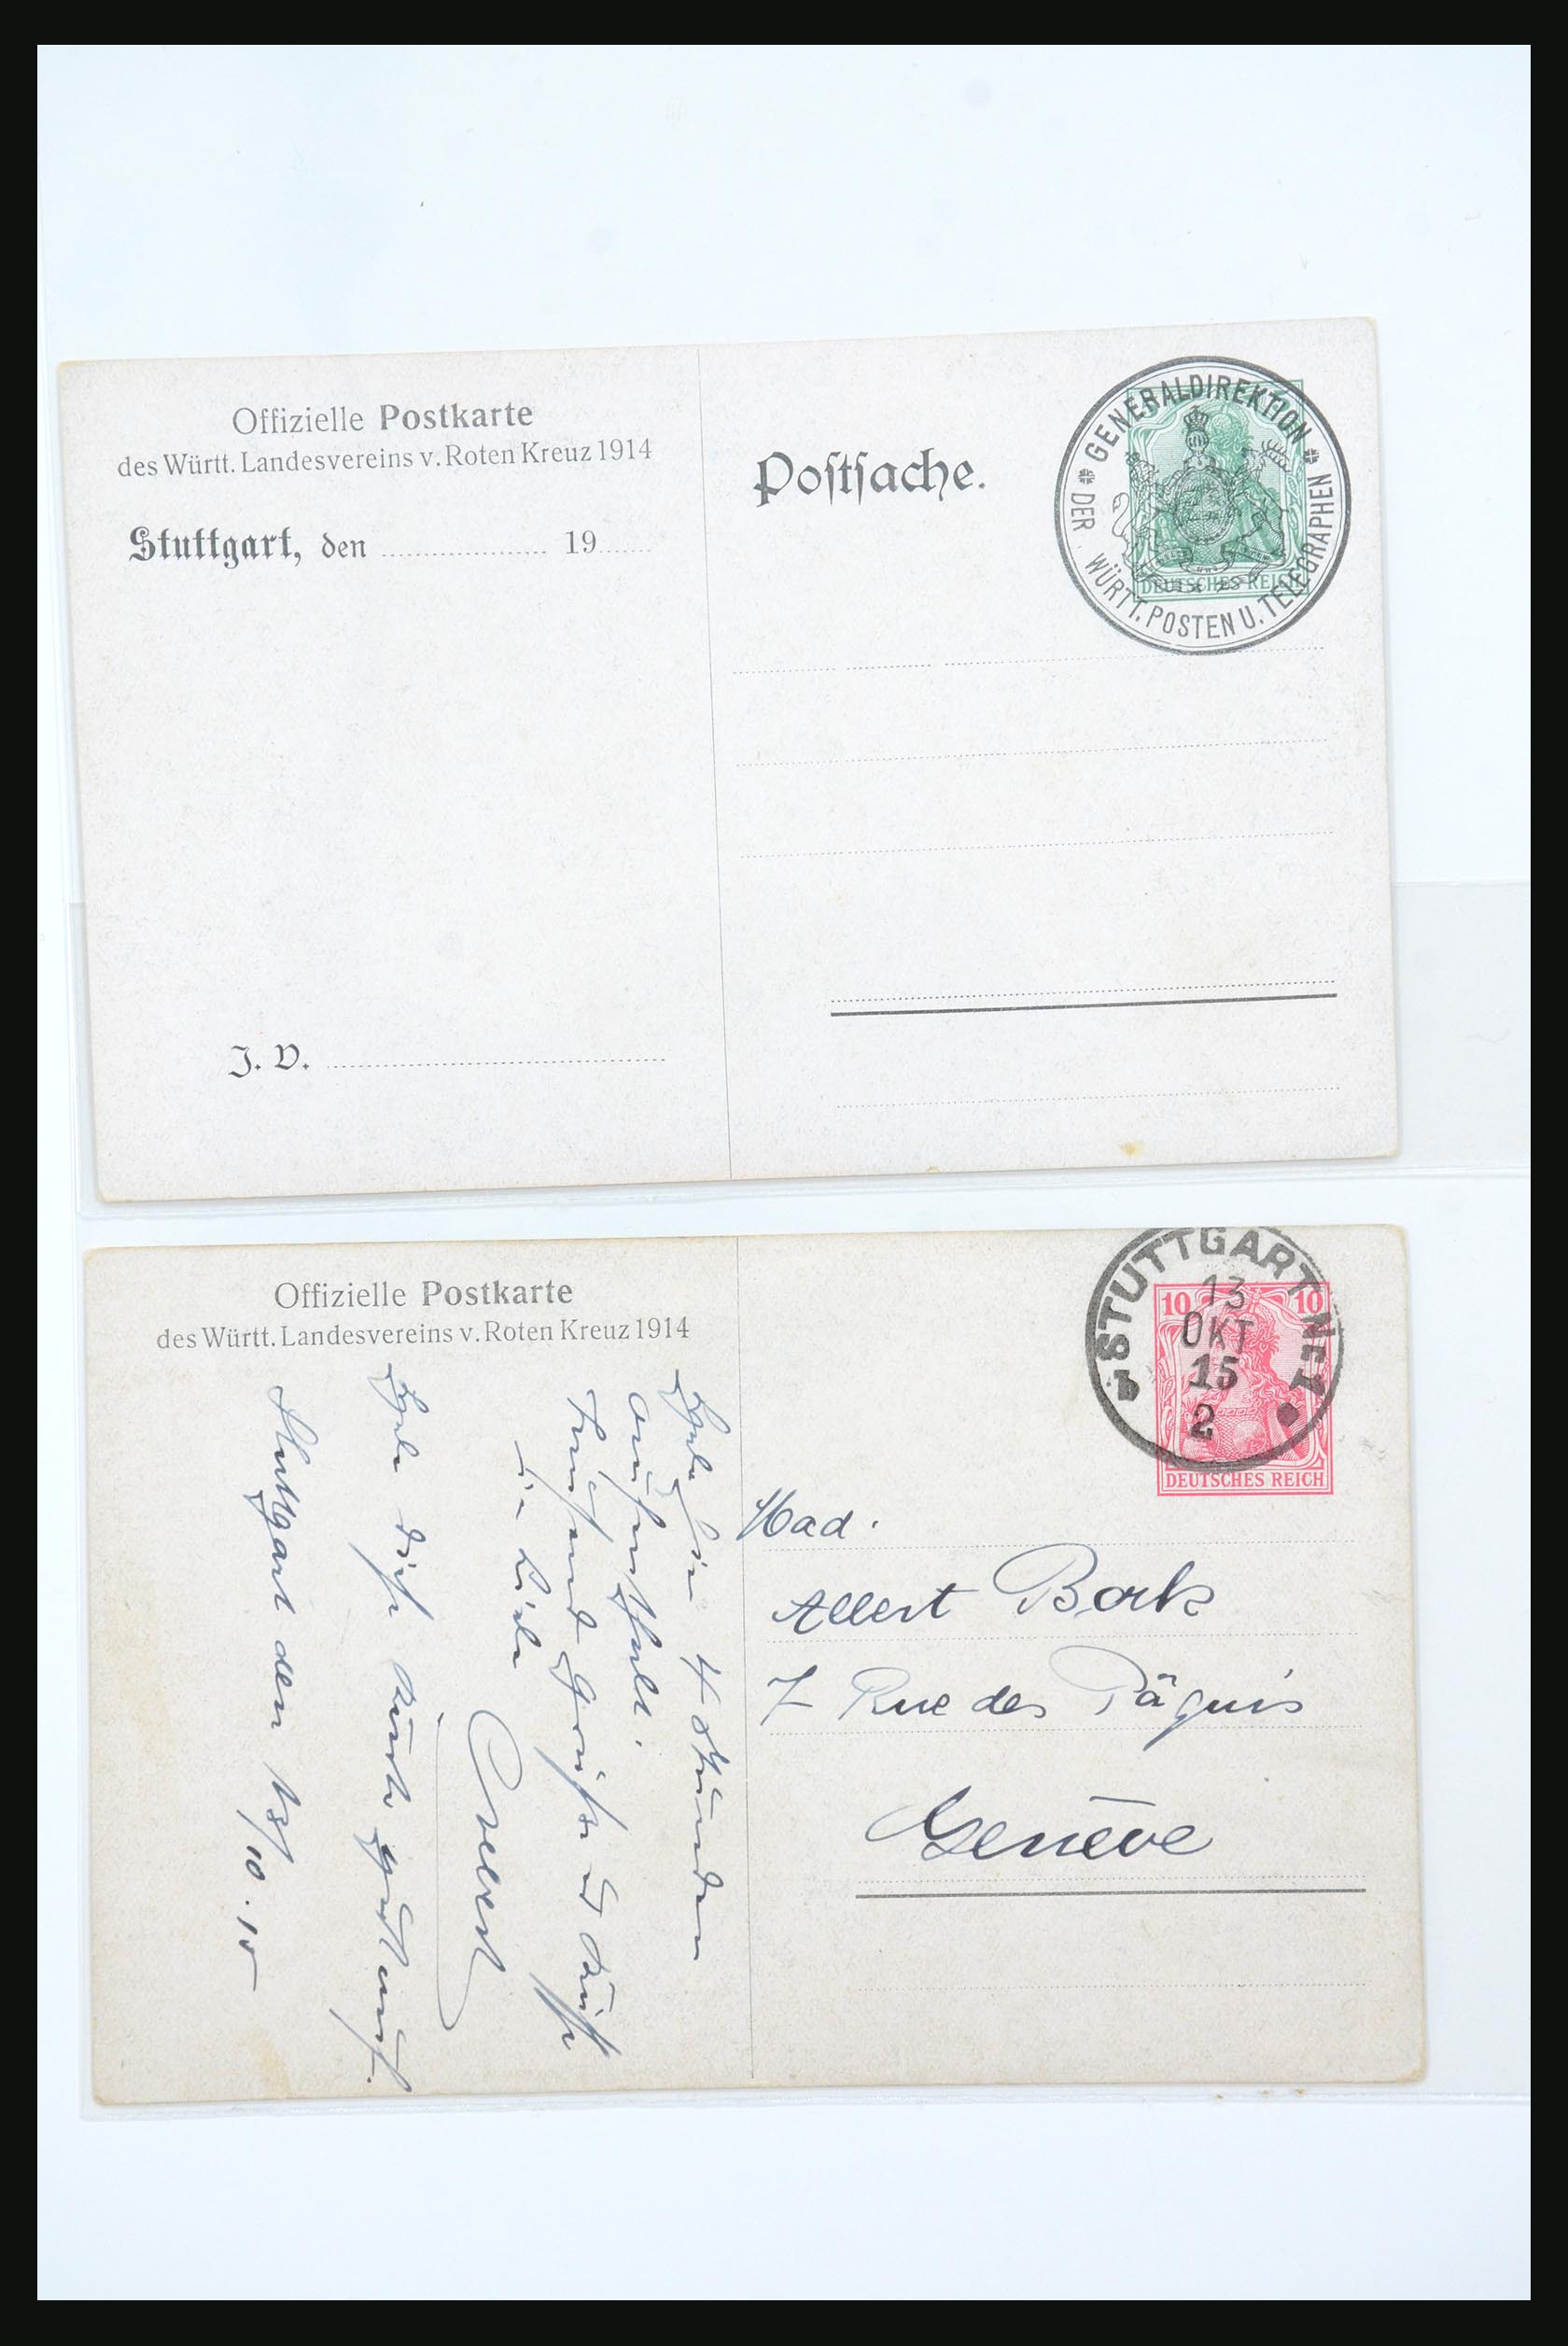 Offizielle Postkarte
des Württ. Landesvereins v. Roten Kreuz 1914
Stuttgart, den 19
J. V.
Postsache.
GENERALDIREKTION
DER WÜRTT. POSTEN U. TELEGRAPHEN
DEUTSCHES REICH
Offizielle Postkarte
des Württ. Landesvereins v. Roten Kreuz 1914
Stuttgart den 13/10.15
Habe hier 4 Stunden
Aufenthalt.
Tausend Grüße
STUTTGART No 1
13
OKT
15
2
10 10
DEUTSCHES REICH
Mad.
Albert Bork
7 Rue des Pâquis
Genève